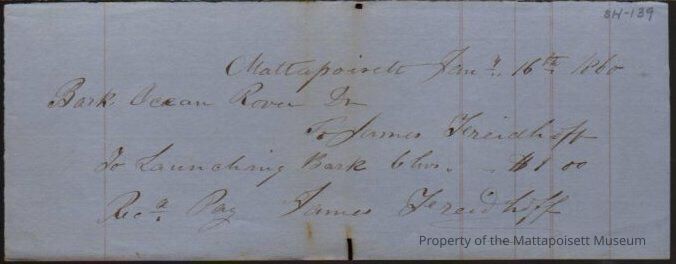 SH-139
Mattapoisett Jany. 16th 1860
Bark Ocean Rover Dr
To James Freidhoff
To Launching Bark 6 hrs. $1 00
Recd. Pay James Freidhoff
Property of the Mattapoisett Museum